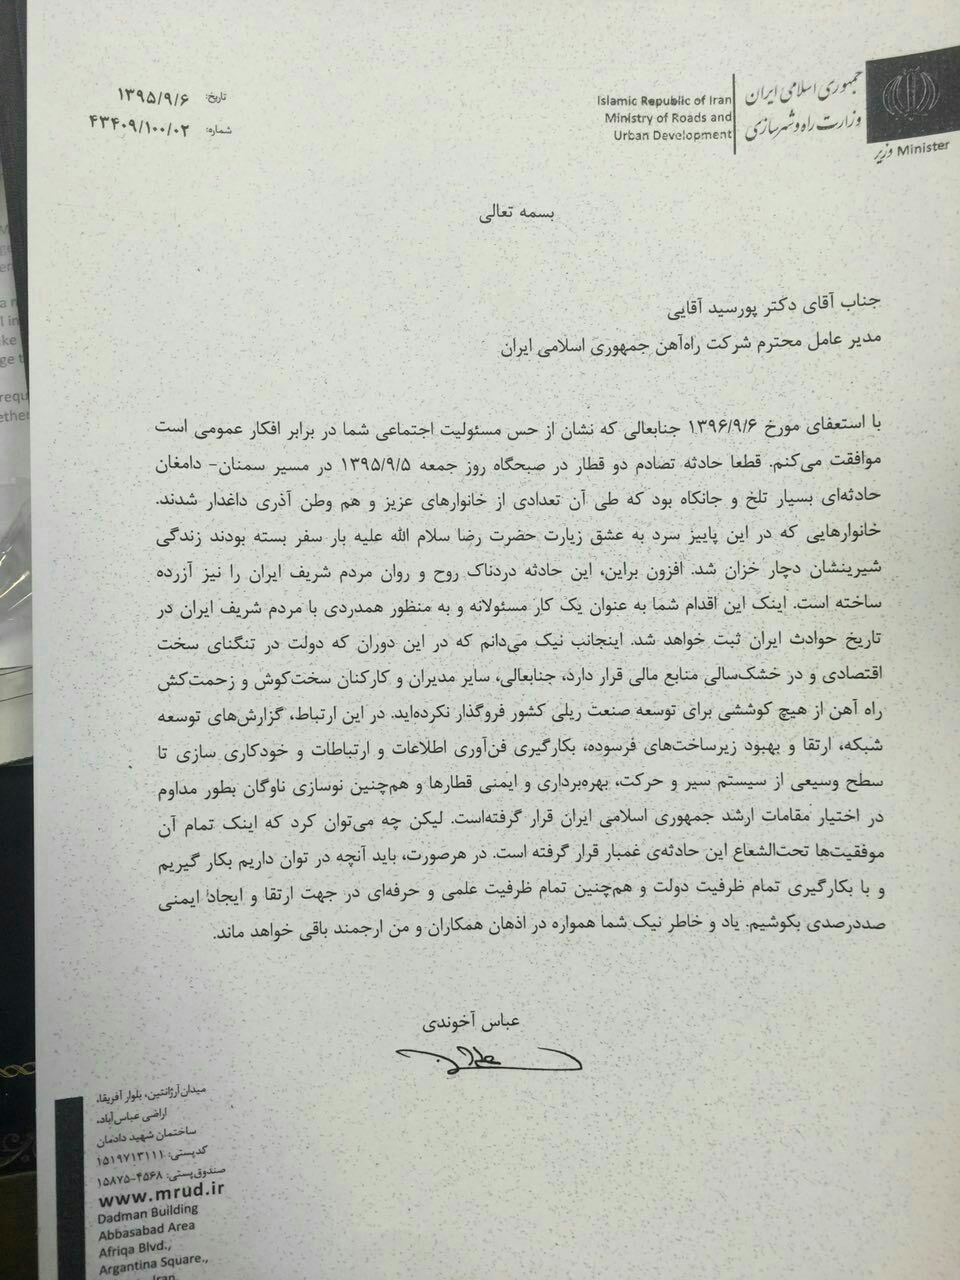 جمهوری اسلامی ایران
وزارت راه و شهرسازی
Islamic Republic of Iran
Ministry of Roads and
Urban Development
وزیر Minister
تاریخ: ۱۳۹۵/۹/۶
شماره: ۴۳۴۰۹/۱۰۰/۰۲
بسمه تعالی
جناب آقای دکتر پورسید آقایی
مدیر عامل محترم شرکت راه‌آهن جمهوری اسلامی ایران
با استعفای مورخ ۱۳۹۶/۹/۶ جنابعالی که نشان از حس مسئولیت اجتماعی شما در برابر افکار عمومی است
موافقت می‌کنم. قطعا حادثه تصادم دو قطار در صبحگاه روز جمعه ۱۳۹۵/۹/۵ در مسیر سمنان- دامغان
حادثه‌ای بسیار تلخ و جانکاه بود که طی آن تعدادی از خانوارهای عزیز و هم وطن آذری داغدار شدند.
خانوارهایی که در این پاییز سرد به عشق زیارت حضرت رضا سلام الله علیه بار سفر بسته بودند زندگی
شیرینشان دچار خزان شد. افزون براین، این حادثه دردناک روح و روان مردم شریف ایران را نیز آزرده
ساخته است. اینک این اقدام شما به عنوان یک کار مسئولانه و به منظور همدردی با مردم شریف ایران در
تاریخ حوادث ایران ثبت خواهد شد. اینجانب نیک می‌دانم که در این دوران که دولت در تنگنای سخت
اقتصادی و در خشک‌سالی منابع مالی قرار دارد، جنابعالی، سایر مدیران و کارکنان سخت‌کوش و زحمت‌کش
راه آهن از هیچ کوششی برای توسعه صنعت ریلی کشور فروگذار نکرده‌اید. در این ارتباط، گزارش‌های توسعه
شبکه، ارتقا و بهبود زیرساخت‌های فرسوده، بکارگیری فن‌آوری اطلاعات و ارتباطات و خودکاری سازی تا
سطح وسیعی از سیستم سیر و حرکت، بهره‌برداری و ایمنی قطارها و هم‌چنین نوسازی ناوگان بطور مداوم
در اختیار مقامات ارشد جمهوری اسلامی ایران قرار گرفته‌است. لیکن چه می‌توان کرد که اینک تمام آن
موفقیت‌ها تحت‌الشعاع این حادثه‌ی غمبار قرار گرفته است. در هرصورت، باید آنچه در توان داریم بکار گیریم
و با بکارگیری تمام ظرفیت دولت و هم‌چنین تمام ظرفیت علمی و حرفه‌ای در جهت ارتقا و ایجاد ایمنی
صددرصدی بکوشیم. یاد و خاطر نیک شما همواره در اذهان همکاران و من ارجمند باقی خواهد ماند.
عباس آخوندی
میدان آرژانتین، بلوار آفریقا،
اراضی عباس‌آباد،
ساختمان شهید دادمان
کدپستی: ۱۵۱۹۷۱۳۱۱۱
صندوق‌پستی: ۴۵۶۸-۱۵۸۷۵
www.mrud.ir
Dadman Building
Abbasabad Area
Afriqa Blvd.,
Argantina Square.,
Iran